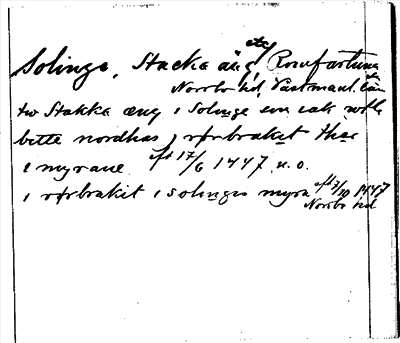 Solinge, Stacka äng, Romfartuna
Norrbo hd, Västmanl. län
tw Stakka æng i Solinge em eak with
bitte nordhas j rørbraket thær
i myrane aft 17/6 1447 u. o.
i rørbrakit i solinges myra aft 7/10 1447
Norrbo hd